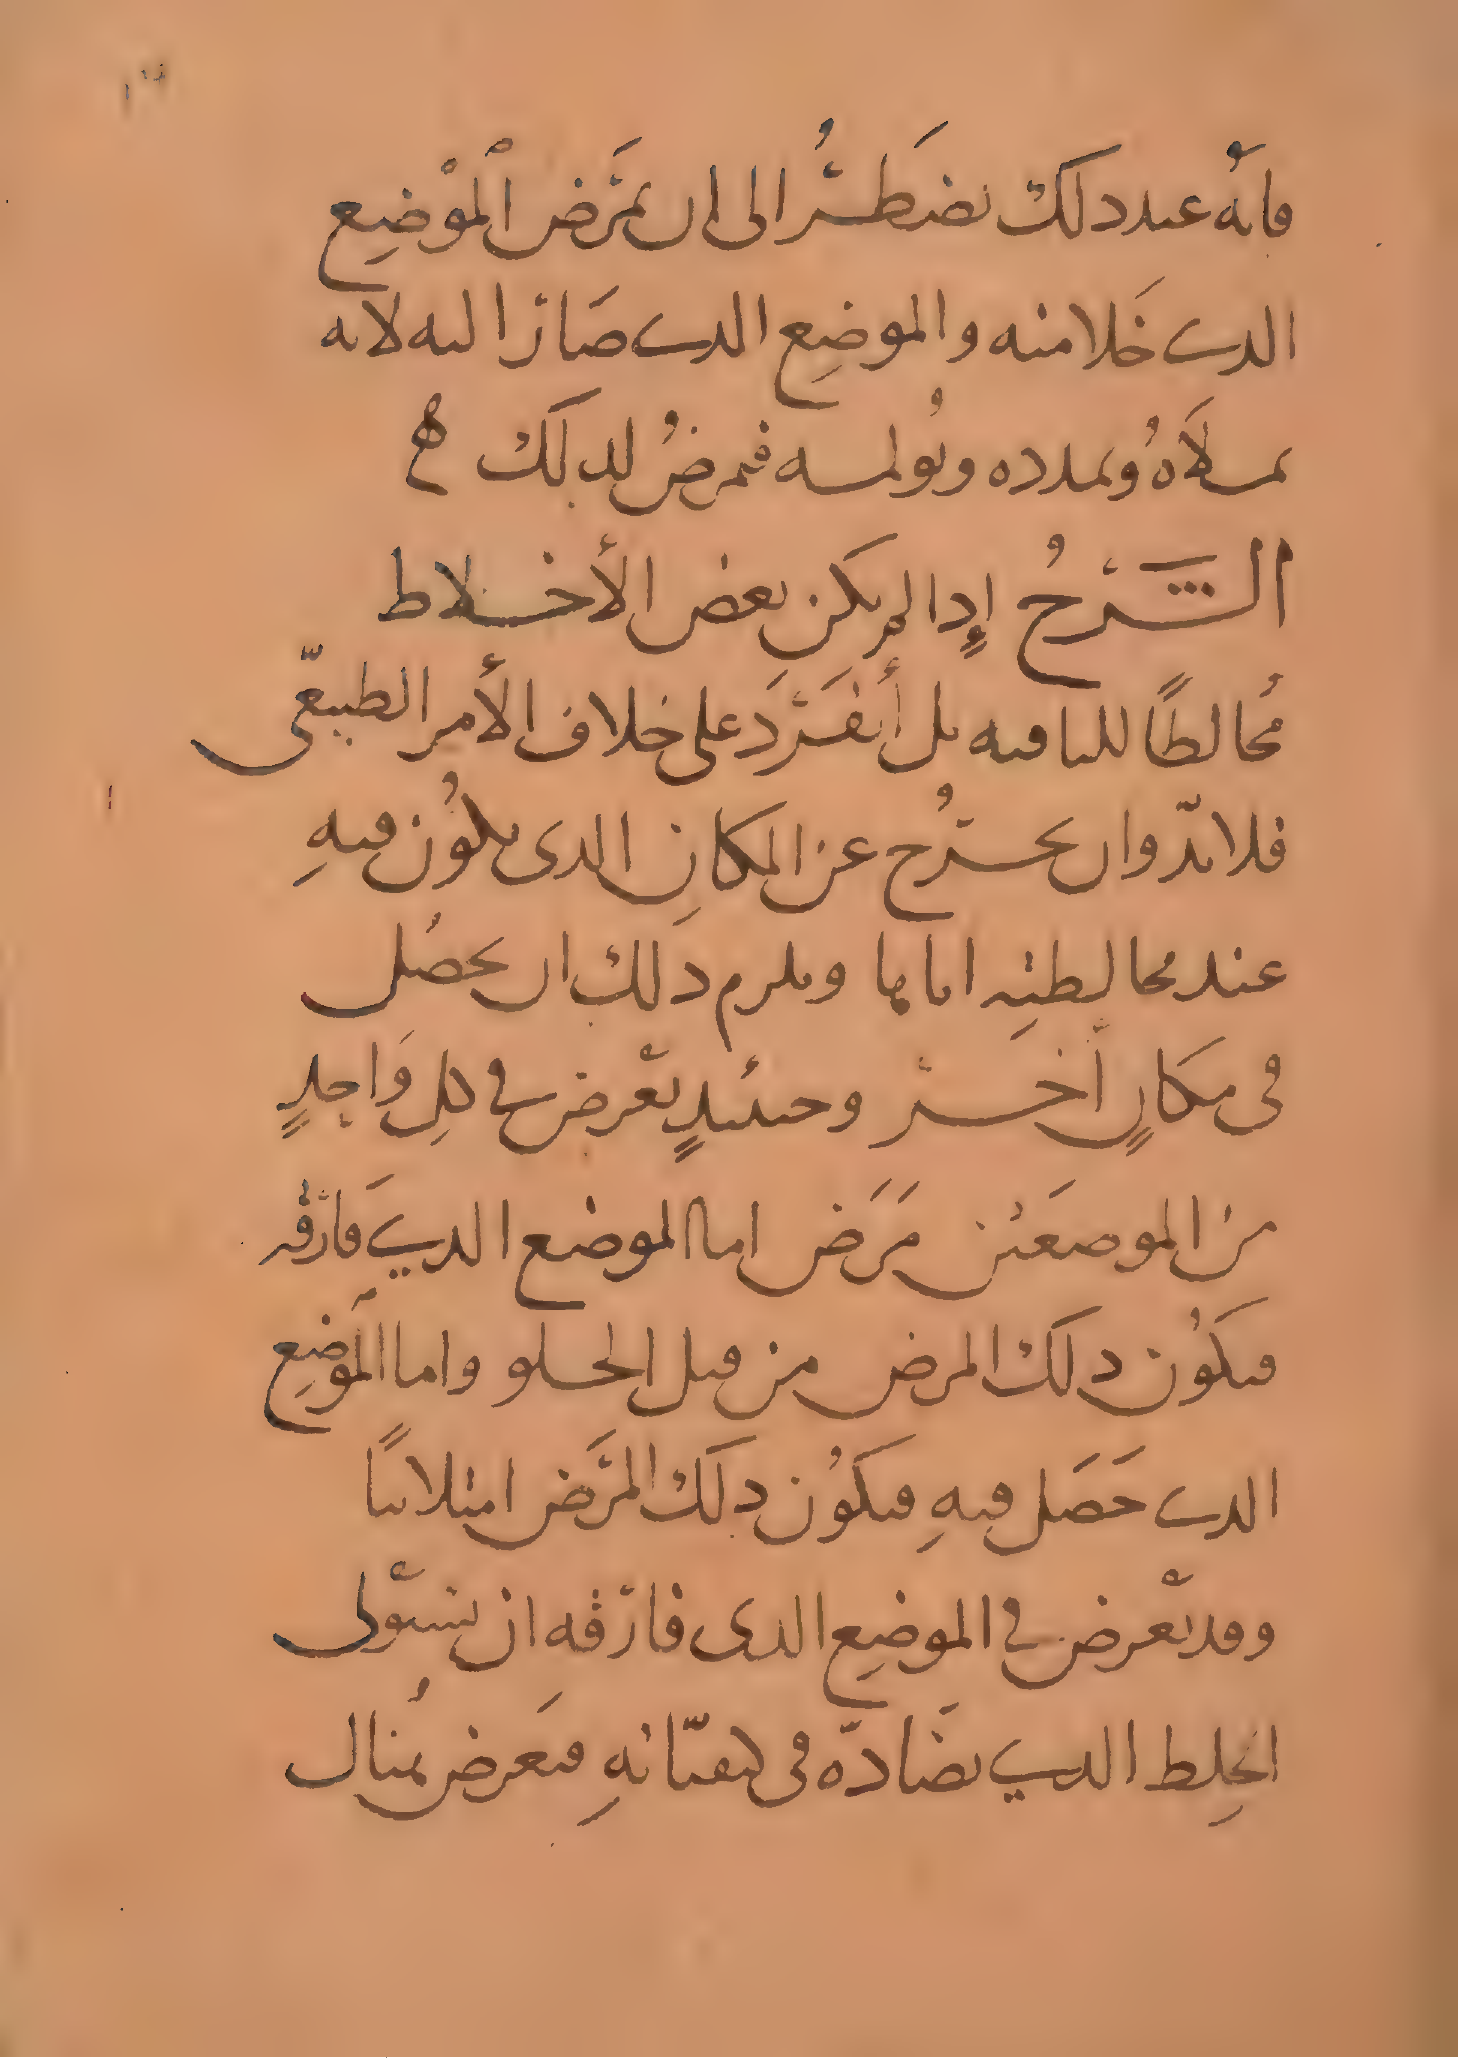 فانه عند ذلك يضطرُّ الى ان يمرَض الموْضِع
الذي خَلا منه والموضِع الذي صَار اليه لانه
يملَأهُ ويمدده ويُولمه فيمرضُ لذلك
الشَّرْحُ إذا لم يكن بعض الأخلاط
مُخالطًا للباقيه بل أنفَرَدَ على خلاف الأمر الطبيعّى
فلا بدّ وان يخرُج عن المكانِ الذى يكُون فيهِ
عند مخالطتِه اياها ويلزم ذلك ان يحصُل
فى مكانٍ آخر وحينئذٍ يعْرض في كلِ وَاحدٍ
من الموضعَين مَرَض اما الموضع الذي فارقه
فيكُون ذلك المرض من قبل الخلو واما الموضِع
الذي حَصَل فيهِ فيكُون ذلك المرَض امتلائيًا
وقد يعْرض في الموضِع الذى فارقه ان يستوْلى
الخِلط الذي يضَادّه فى كيفيّاتهِ فيَعرض مُثال